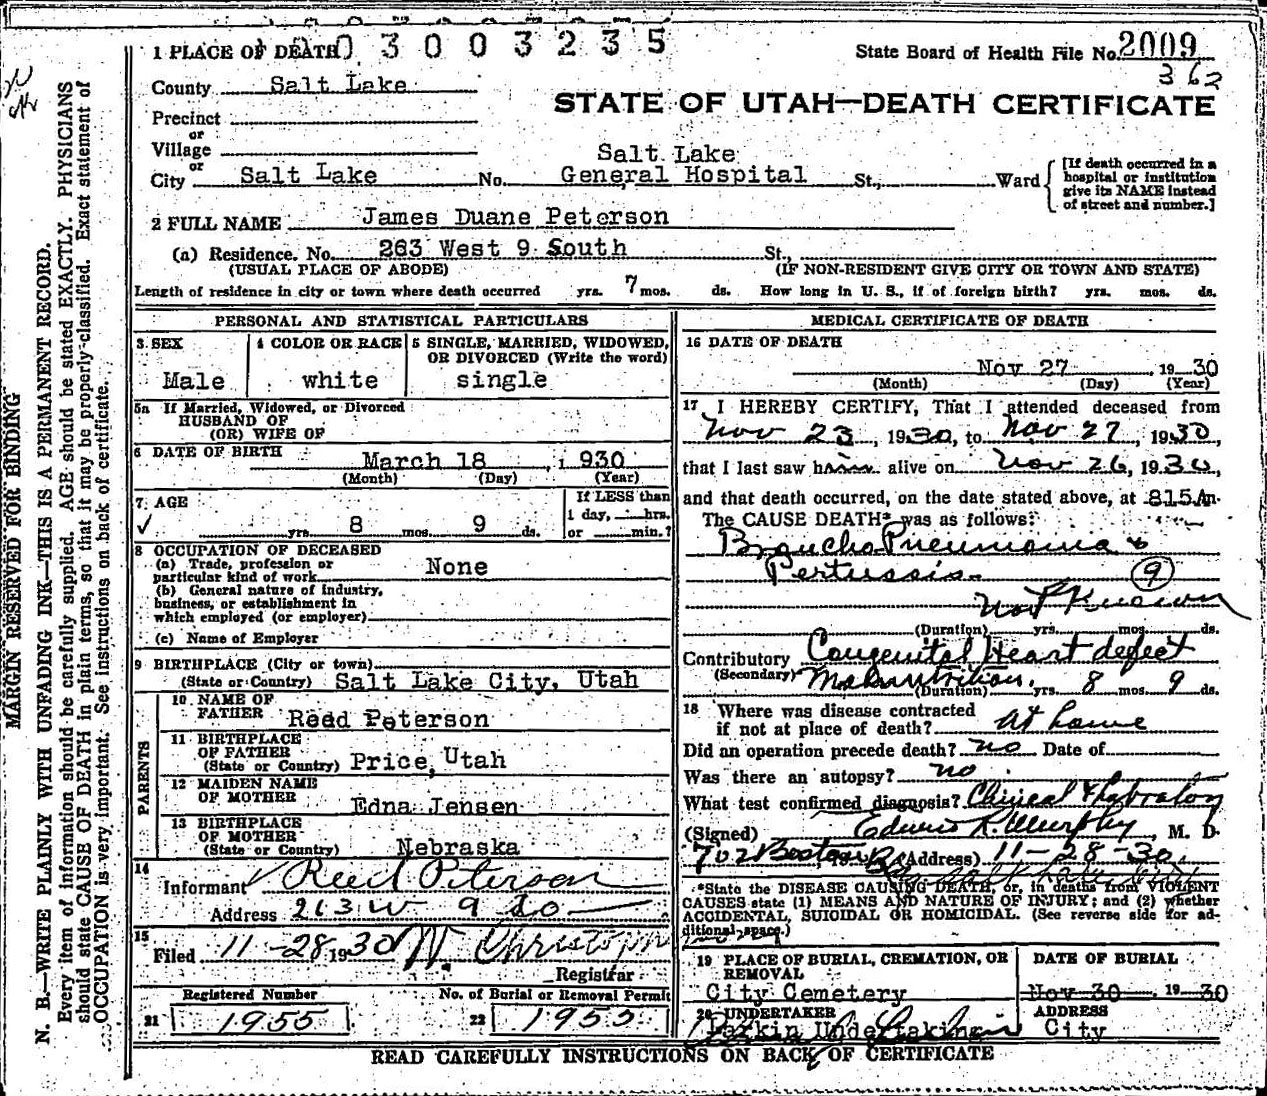 1 PLACE OF DEATH 0 3 0 0 3 2 3 5
State Board of Health File No. 2009
362
County Salt Lake
STATE OF UTAH—DEATH CERTIFICATE
Precinct
or
Village
or
City Salt Lake No. Salt Lake General Hospital St., Ward
[If death occurred in a
hospital or institution
give its NAME instead
of street and number.]
2 FULL NAME James Duane Peterson
(a) Residence. No. 263 West 9 South St.,
(USUAL PLACE OF ABODE) (IF NON-RESIDENT GIVE CITY OR TOWN AND STATE)
Length of residence in city or town where death occurred yrs. 7 mos. ds. How long in U. S., if of foreign birth? yrs. mos. ds.
PERSONAL AND STATISTICAL PARTICULARS
3 SEX
Male
4 COLOR OR RACE
white
5 SINGLE, MARRIED, WIDOWED,
OR DIVORCED (Write the word)
single
5a If Married, Widowed, or Divorced
HUSBAND OF
(OR) WIFE OF
6 DATE OF BIRTH
March 18, 1930
(Month) (Day) (Year)
7 AGE
yrs. 8 mos. 9 ds.
If LESS than
1 day, hrs.
or min.?
8 OCCUPATION OF DECEASED
(a) Trade, profession or
particular kind of work None
(b) General nature of industry,
business, or establishment in
which employed (or employer)
(c) Name of Employer
9 BIRTHPLACE (City or town)
(State or Country) Salt Lake City, Utah
PARENTS
10 NAME OF
FATHER Reed Peterson
11 BIRTHPLACE
OF FATHER
(State or Country) Price, Utah
12 MAIDEN NAME
OF MOTHER Edna Jensen
13 BIRTHPLACE
OF MOTHER
(State or Country) Nebraska
14
Informant Reed Peterson
Address 263 W 9 So
15
Filed 11-28 1930 W. Christoph
Registrar
Registered Number
21 1955
No. of Burial or Removal Permit
22 1955
MEDICAL CERTIFICATE OF DEATH
16 DATE OF DEATH
Nov 27, 1930
(Month) (Day) (Year)
17 I HEREBY CERTIFY, That I attended deceased from
Nov 23, 1930, to Nov 27, 1930,
that I last saw him alive on Nov 26, 1930,
and that death occurred, on the date stated above, at 815 A m.
The CAUSE DEATH* was as follows:
Broncho Pneumonia &
Pertussis. 9
Not Known
(Duration) yrs. mos. ds.
Contributory Congenital Heart defect
(Secondary) Malnutrition.
(Duration) yrs. 8 mos. 9 ds.
18 Where was disease contracted
if not at place of death? at home
Did an operation precede death? no Date of
Was there an autopsy? no
What test confirmed diagnosis? Clinical & Laboratory
(Signed) Edwin R. Murphy, M. D.
702 Boston (Address) 11-28-30.
*State the DISEASE CAUSING DEATH, or, in deaths from VIOLENT
CAUSES state (1) MEANS AND NATURE OF INJURY; and (2) whether
ACCIDENTAL, SUICIDAL OR HOMICIDAL. (See reverse side for ad-
ditional space.)
19 PLACE OF BURIAL, CREMATION, OR
REMOVAL
City Cemetery
DATE OF BURIAL
Nov 30, 1930
20 UNDERTAKER
Larkin Undertaking
ADDRESS
City
READ CAREFULLY INSTRUCTIONS ON BACK OF CERTIFICATE
MARGIN RESERVED FOR BINDING
N. B.—WRITE PLAINLY WITH UNFADING INK—THIS IS A PERMANENT RECORD.
Every item of information should be carefully supplied. AGE should be stated EXACTLY. PHYSICIANS
should state CAUSE OF DEATH in plain terms, so that it may be properly classified. Exact statement of
OCCUPATION is very important. See instructions on back of certificate.